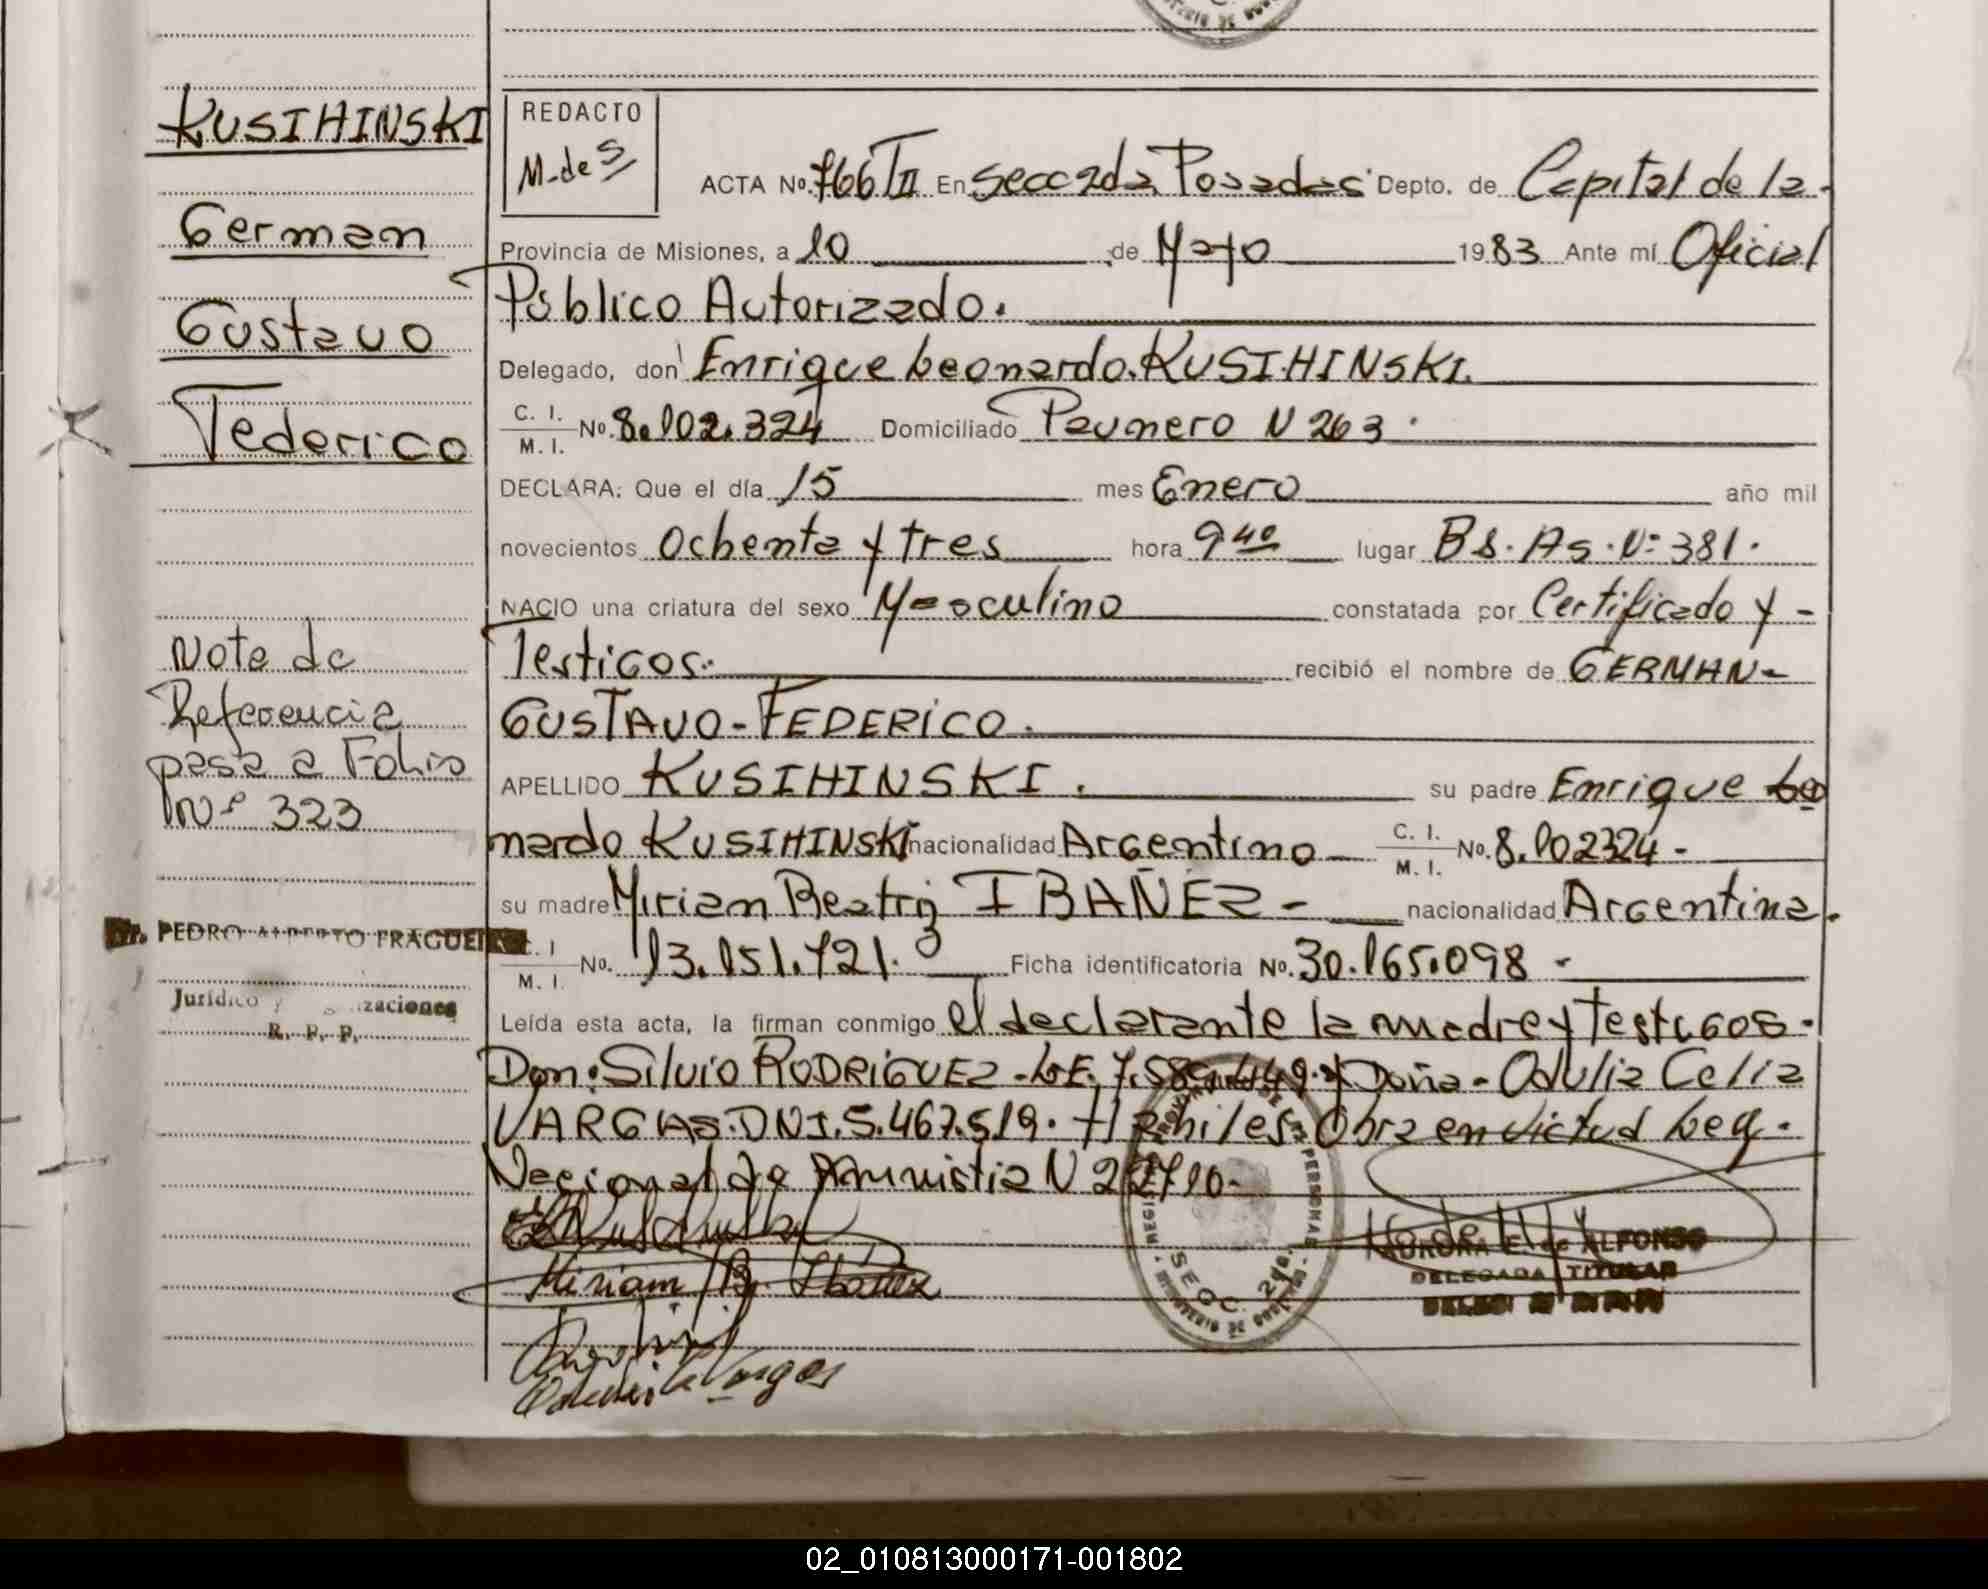 KUSIHINSKI
German
Gustavo
Federico
Nota de
Referencia
pasa a Folio
Nº 323
PEDRO ALBERTO FRAGUEI
Jurídico y zaciones
R. P. P.
REDACTO
M. de S
ACTA No. 766 TII En secc 2da Posadas Depto. de Capital de la
Provincia de Misiones, a 10 de Mayo 1983 Ante mí Oficial
Público Autorizado.
Delegado, don Enrique Leonardo KUSIHINSKI.
C. I.
M. I. No. 8.102.324 Domiciliado Paunero N 263
DECLARA: Que el día 15 mes Enero año mil
novecientos Ochenta y tres hora 9 40 lugar BS. As. Nº 381.
NACIO una criatura del sexo Masculino constatada por Certificado y -
Testigos. recibió el nombre de GERMAN-
GUSTAVO-FEDERICO.
APELLIDO KUSIHINSKI. su padre Enrique Leo
nardo KUSIHINSKI nacionalidad Argentino C. I.
M. I. No. 8.102324-
su madre Miriam Beatriz IBAÑEZ - nacionalidad Argentina.
C. I
M. I. No. 13.151.721. Ficha identificatoria No. 30.165.098 -
Leída esta acta, la firman conmigo el declarante la madre y Testigos.
Don: Silvio RODRIGUEZ-LE. 7.589.449 y Doña-Odulia Celia
VARGAS. DNI. 5.467.519. Habiles. Obra en virtud Ley.
Nacional de Amnistia N 22710.
Miriam B. Ibañez
Vargas
SECC. 2da.
AURORA E. de ALFONSO
DELEGADA TITULAR
02_010813000171-001802